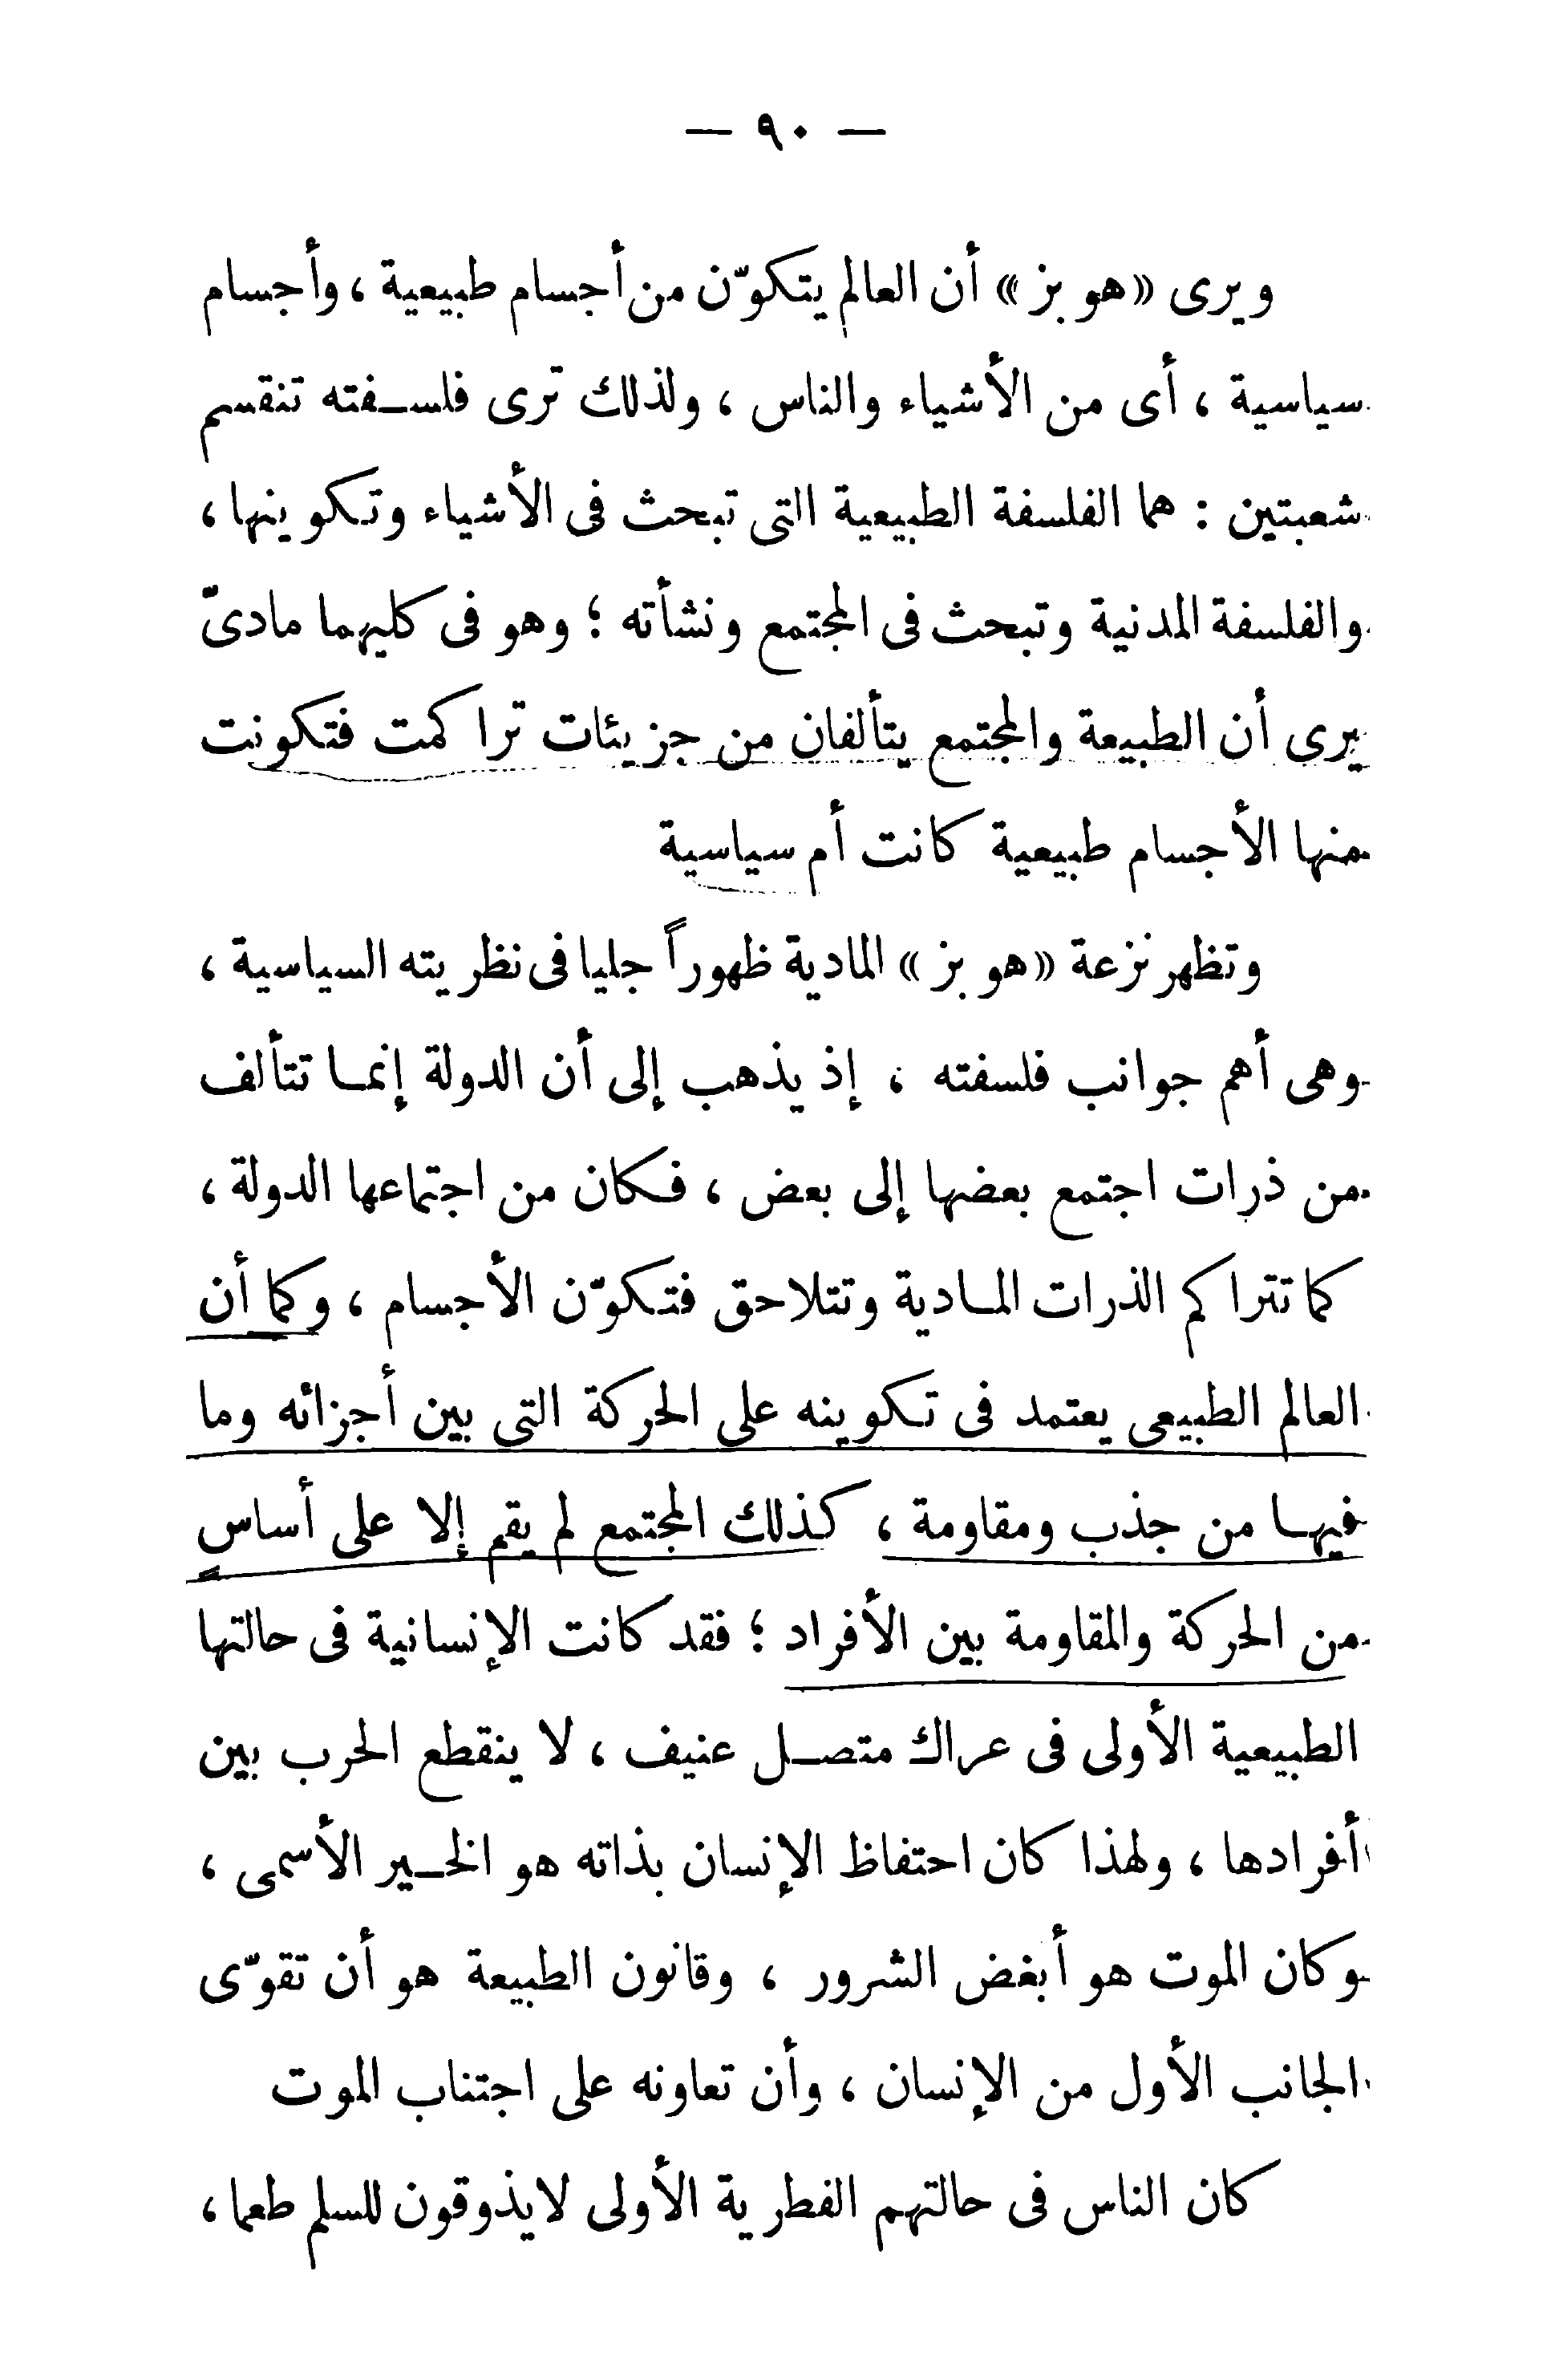 — ٩٠ —
ويرى «هوبز» أن العالم يتكوّن من أجسام طبيعية ، وأجسام
سياسية ، أى من الأشياء والناس ، ولذلك ترى فلسـفته تنقسم
شعبتين : هما الفلسفة الطبيعية التى تبحث فى الأشياء وتكوينها ،
والفلسفة المدنية وتبحث فى المجتمع ونشأته ؛ وهو فى كليهما مادىّ
يرى أن الطبيعة والمجتمع يتألفان من جزيئات تراكمت فتكونت
منها الأجسام طبيعية كانت أم سياسية
وتظهر نزعة «هوبز» المادية ظهوراً جليا فى نظريته السياسية ،
وهى أهم جوانب فلسفته ، إذ يذهب إلى أن الدولة إنمـا تتألف
من ذرات اجتمع بعضها إلى بعض ، فكان من اجتماعها الدولة ،
كما تتراكم الذرات المـادية وتتلاحق فتكوّن الأجسام ، وكما أن
العالم الطبيعى يعتمد فى تكوينه على الحركة التى بين أجزائه وما
فيهـا من جذب ومقاومة ، كذلك المجتمع لم يقم إلا على أساسٍ
من الحركة والمقاومة بين الأفراد ؛ فقد كانت الإنسانية فى حالتها
الطبيعية الأولى فى عراك متصـل عنيف ، لا ينقطع الحرب بين
أفرادها ، ولهذا كان احتفاظ الإنسان بذاته هو الخـير الأسمى ،
وكان الموت هو أبغض الشرور ، وقانون الطبيعة هو أن تقوّى
الجانب الأول من الإنسان ، وأن تعاونه على اجتناب الموت
كان الناس فى حالتهم الفطرية الأولى لايذوقون للسلم طعما ،